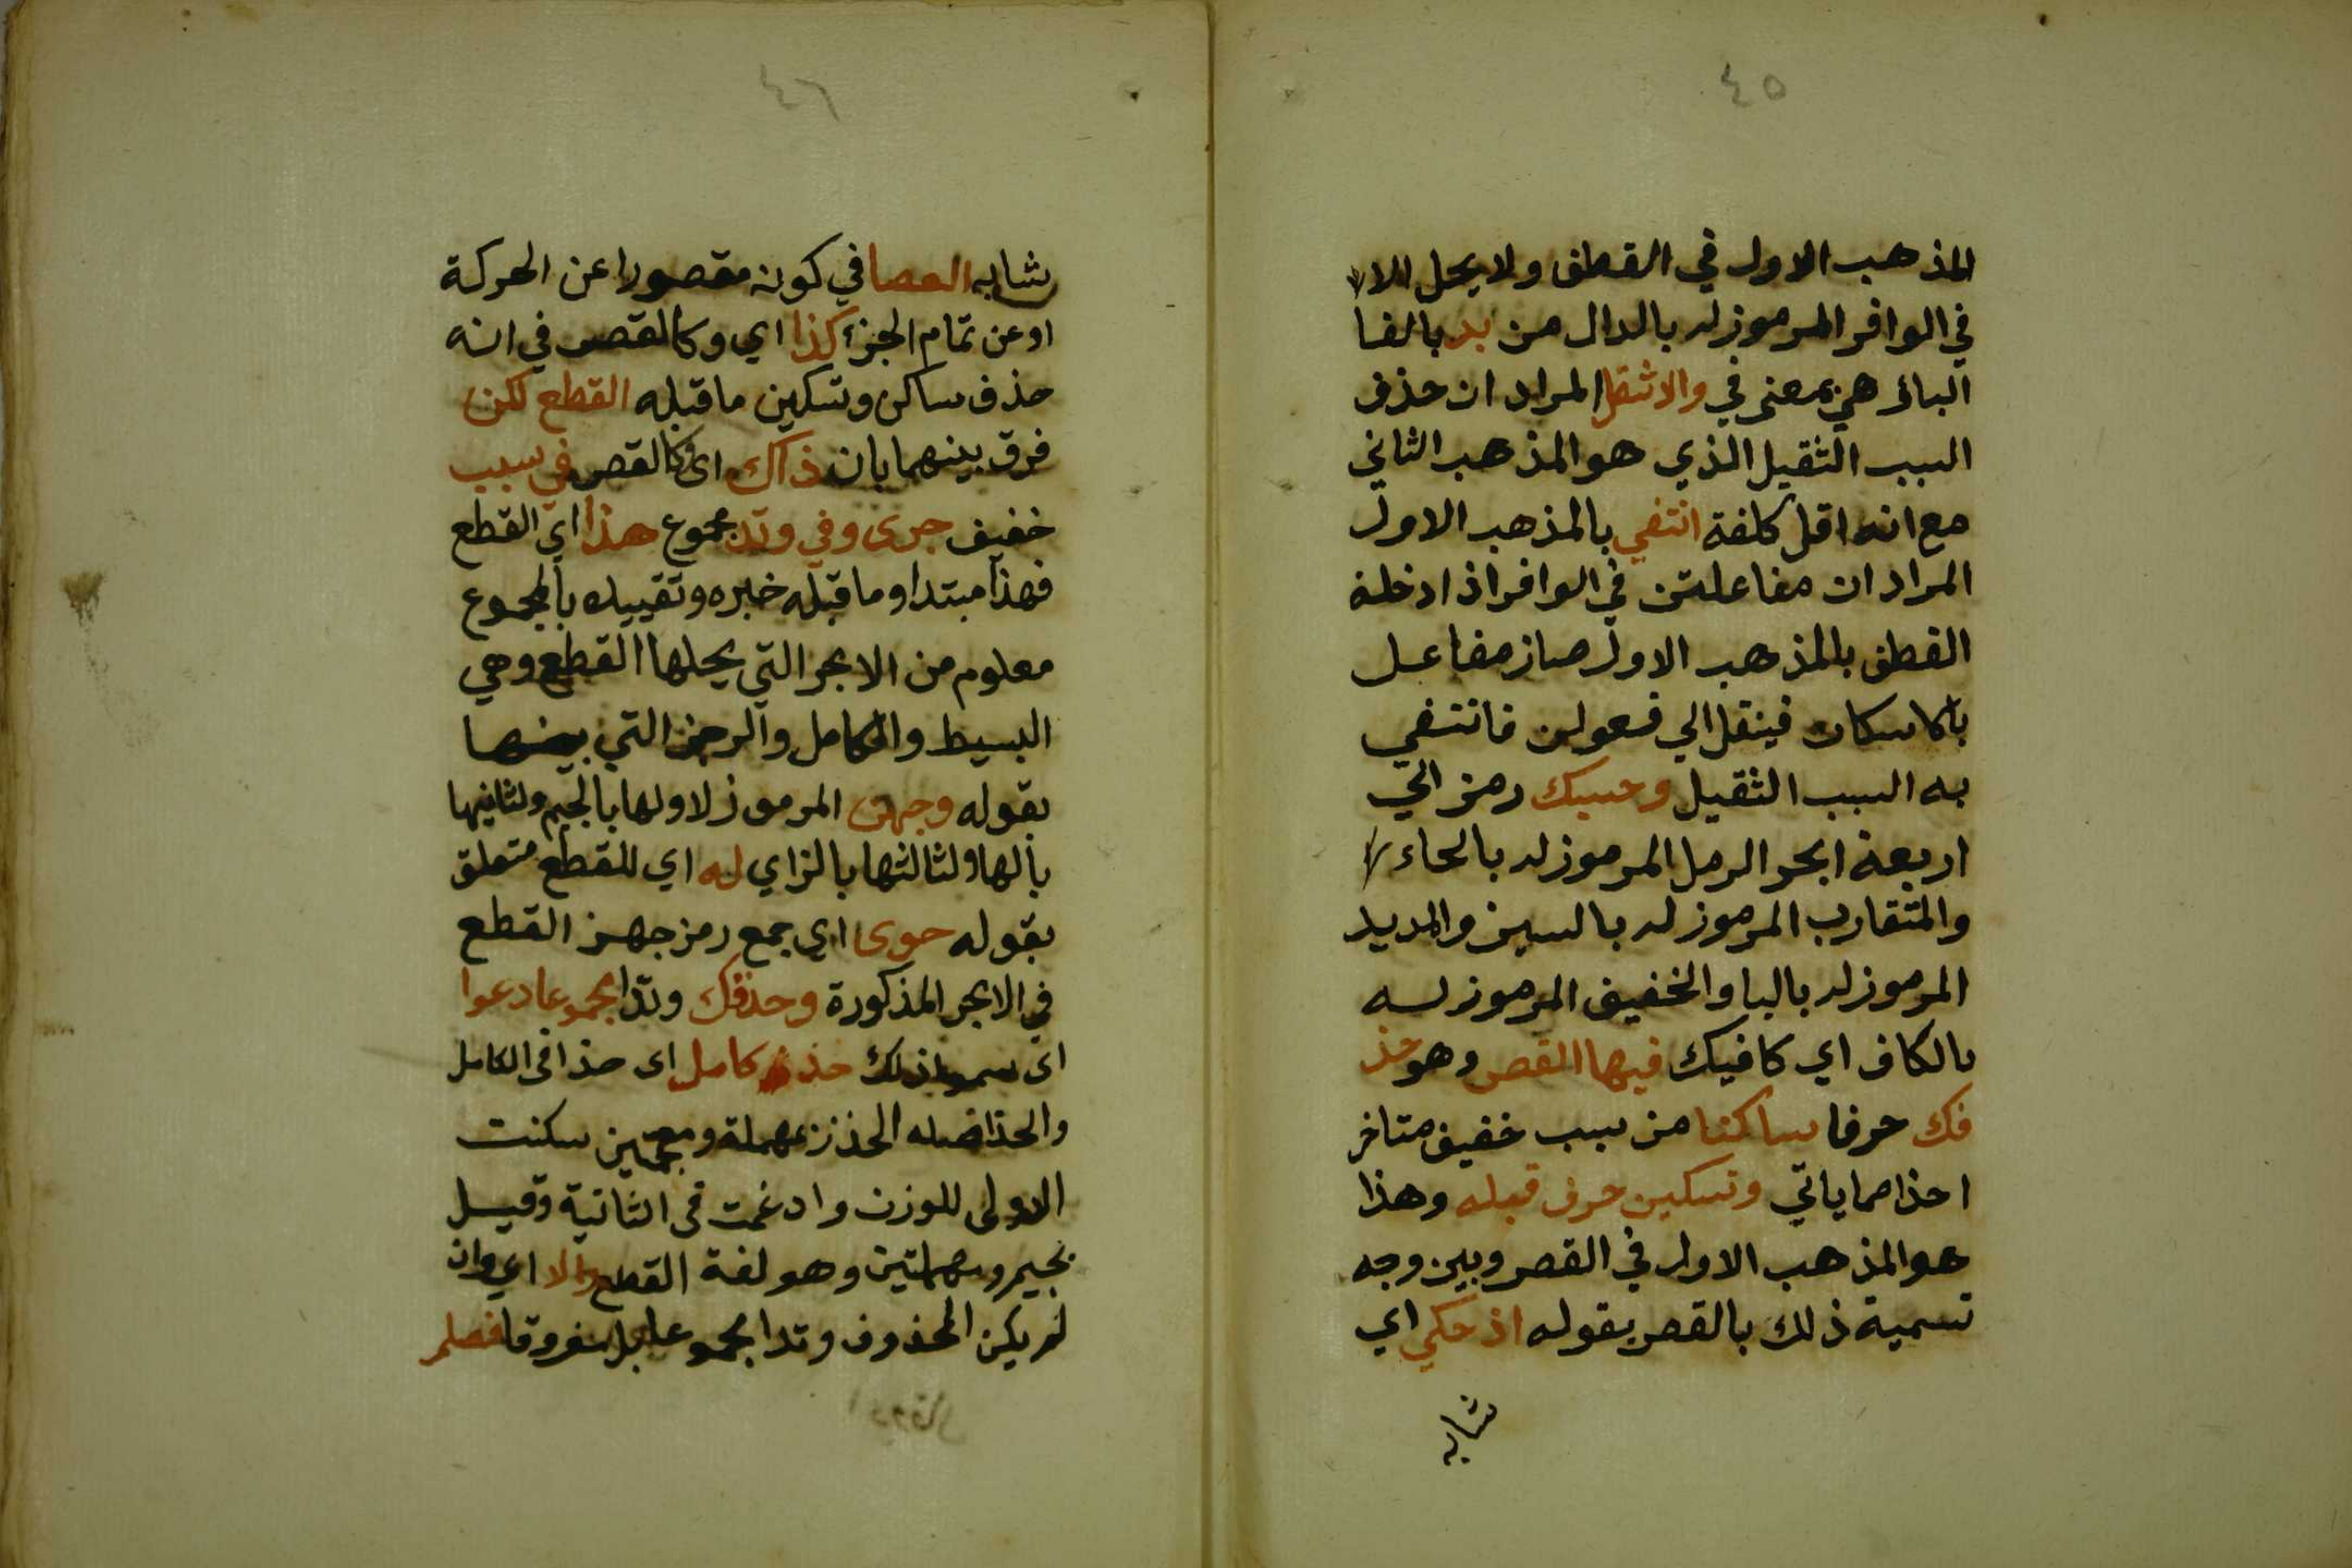 ٤٥
المذهب الاول في القطف ولا يحل الا
في الوافر المرموز له بالدال من بد بالفا
البائر هي بمعنى في والاثقل المراد ان حذف
السبب الثقيل الذي هو المذهب الثاني
مع انه اقل كلفة انتفي بالمذهب الاول
المراد ان مفاعلتن في الوافر اذا دخله
القطف بالمذهب الاول صار مفاعل
باسكان فينقل الي فعولن فانتفي
به السبب الثقيل وحسبك رمز الي
اربعة ابحر الرمل المرموز له بالحاء
والمتقارب المرموز له بالسين والمديد
المرموز له بالبا والخفيف المرموز له
بالكاف اي كافيك فيها القصر وهو حذ
فك حرفا ساكنا من سبب خفيف متاخر
اخذا مما ياتي وتسكين حرف قبله وهذا
هو المذهب الاول في القصر وبين وجه
تسمية ذلك بالقصر بقوله اذ حكي اي
شابه
٤٦
شابه العصا في كونه مقصورا عن الحركة
او عن تمام الجزء كذا اي وكالقصر في انه
حذف ساكن وتسكين ما قبله القطع لكن
فرق بينهما بان ذاك اي كالقصر في سبب
خفيف جرى وفي وتد مجموع هذا اي القطع
فهذا مبتدا وما قبله خبره وتقييده بالمجموع
معلوم من الابحر التي يحلها القطع وهي
البسيط والكامل والرجز التي بينها
بقوله وجهز المرموز لاولها بالجيم ولثانيها
بالها ولثالثها بالزاي له اي للقطع متعلق
بقوله حوى اي جمع رمز جهز القطع
في الابحر المذكورة وحذفك وتدا مجموعا دعوا
اى سموا ذلك حذذ كامل اى حذا في الكامل
والحذ اصله الحذذ بمهملة ومعجمتين سكنت
الاولى للوزن وادغمت في الثانية وقيل
بجيم ومهملتين وهو لغة القطع والا اي وان
لم يكن المحذوف وتدا مجموعا بل مفروقا فصلم